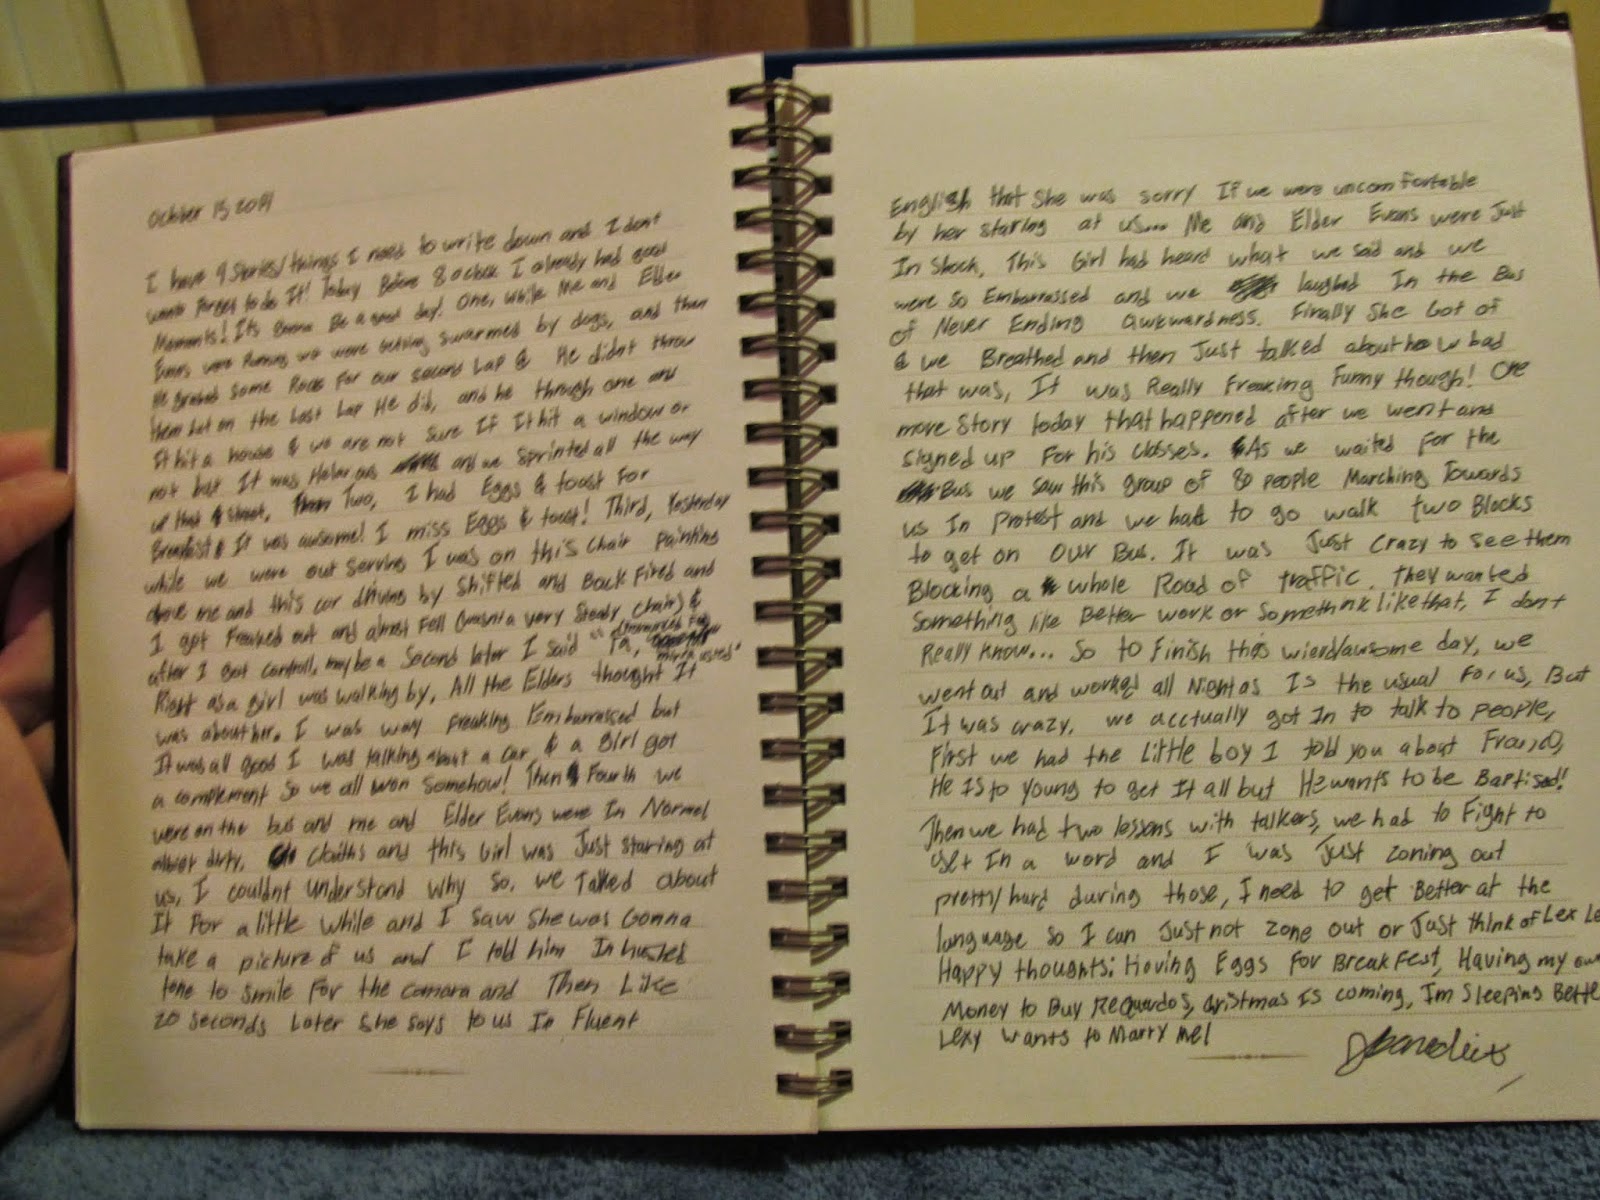 October 13 2014
I have 9 Stories/things I need to write down and I dont
wanto Forget to do It! Today Before 8 oclock I already had good
Moments! Its Gonna Be a good day! One, while Me and Elder
Evans were Running we were getting swarmed by dogs, and then
He grabed some Rocks For our second Lap & He didnt throw
them but on the Last Lap He did, and he through one and
It hit a house & we are not sure If It hit a window or
not but It was and we Sprinted all the way
up that street, Two, I had Eggs & toast For
Breakfast & It was awsome! I miss Eggs & toast! Third, Yesterday
while we were out serving I was on this Chair Painting
above me and this car driving by Shifted and Back Fired and
I got Freaked out and almost Fell (wasnt a very Steady chair) &
after I got controll, maybe a Second later I said
Right as a girl was walking by, All the Elders thought It
was about her. I was way Freaking Embarrassed but
It was all good I was talking about a car & a Girl got
a complement so we all won Somehow! Then Fourth we
were on the bus and me and Elder Evans were In Normel
almost dirty, and this Girl was Just staring at
us, I couldnt understand why so, we Talked about
It For a little while and I saw she was Gonna
take a picture of us and I told him In hushed
tone to smile For the camara and Then Like
20 seconds Later She says to us In Fluent
English that She was sorry If we were uncomfortable
by her staring at us.... Me and Elder Evans were Just
In Shock, This Girl had heard what we said and we
were so Embarrassed and we laughed In the Bus
of Never Ending awkwardness. Finally She Got of
& we Breathed and then Just talked about how bad
that was, It was Really Freaking Funny though! One
more Story today that happened after we went and
signed up For his classes. As we waited for the
Bus we saw this group of 80 people Marching Towards
us In Protest and we had to go walk two Blocks
to get on OUR Bus. It was Just Crazy to see them
Blocking a whole Road of traffic. They wanted
Something like Better work or Somethink like that, I dont
Really Know... So to Finish this wierd/awsome day, we
went out and worked all Night as Is the usual For us, But
It was crazy. we acctually got In to talk to people,
First we had the Little boy I told you about
He Is to young to get It all but He wants to be Baptised!
Then we had two lessons with talkers, we had to Fight to
get In a word and I was Just zoning out
pretty hard during those, I need to get Better at the
language so I can Just not zone out or Just think of Lex
Happy thoughts: Having Eggs For BreakFest, Having my
Money to Buy Requardos, cristmas Is coming, Im Sleeping
Lexy wants to Marry Me!